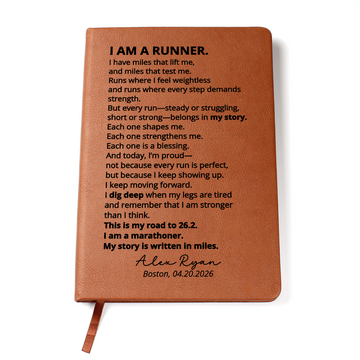 I AM A RUNNER.
I have miles that lift me,
and miles that test me.
Runs where I feel weightless
and runs where every step demands
strength.
But every run—steady or struggling,
short or strong—belongs in my story.
Each one shapes me.
Each one strengthens me.
Each one is a blessing.
And today, I'm proud—
not because every run is perfect,
but because I keep showing up.
I keep moving forward.
I dig deep when my legs are tired
and remember that I am stronger
than I think.
This is my road to 26.2.
I am a marathoner.
My story is written in miles.
Alex Ryan
Boston, 04.20.2026